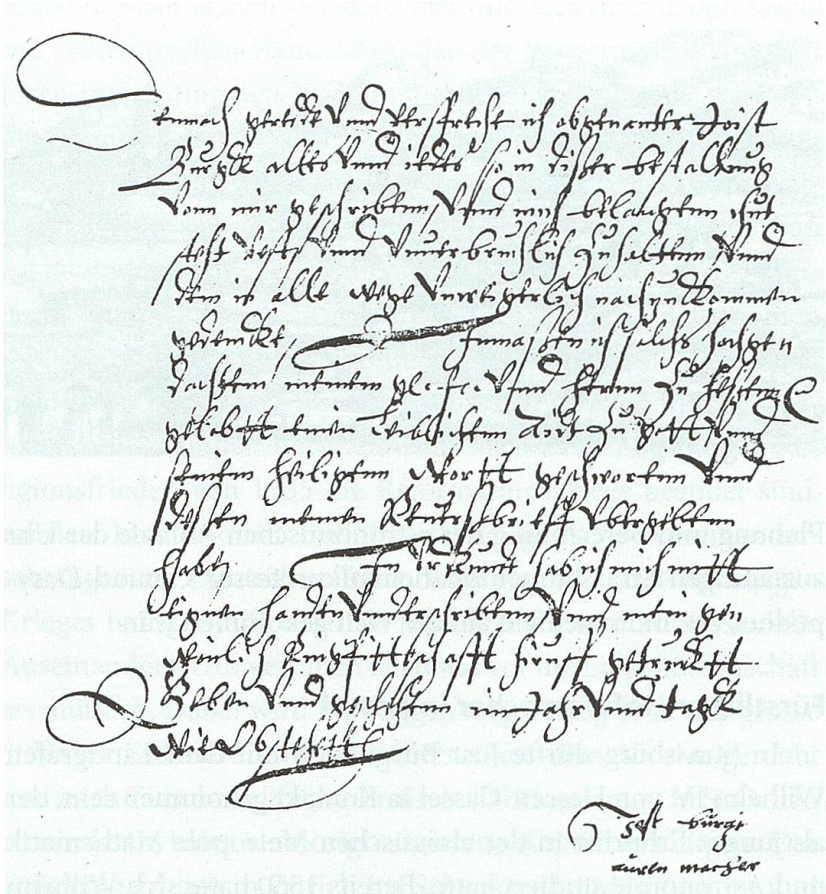 Demnach gerede Vnnd versprech ich obgenanter Joist
Burgii alles Vnnd iedes so in dieser bestallung
Von mir geschrieben, Vnnd mich belangen thut
stedt vest Vnnd Vnuerbruchlich zuhalten Vnnd
dem in alle wege Vnweigerlich nachzukommen
Inmassen ich solchs hochge
dachtem meinem g. f. Vnd herrn zu
gelobtt einen leiblichen Aidt zu gott Vnd
seinem heiligen Wortt geschworen Vnd
dessen diesen Reversbrieff vbergeben
habe In Vrkundt hab ich mich mitt
eignen handen Vnderschrieben Vnd mein ge
wonlich Pittschafft hierfur getruckett
Geben Vnd geschehen im Jahr Vnd tage
wie Obstehett
Jost burgi
uren macher